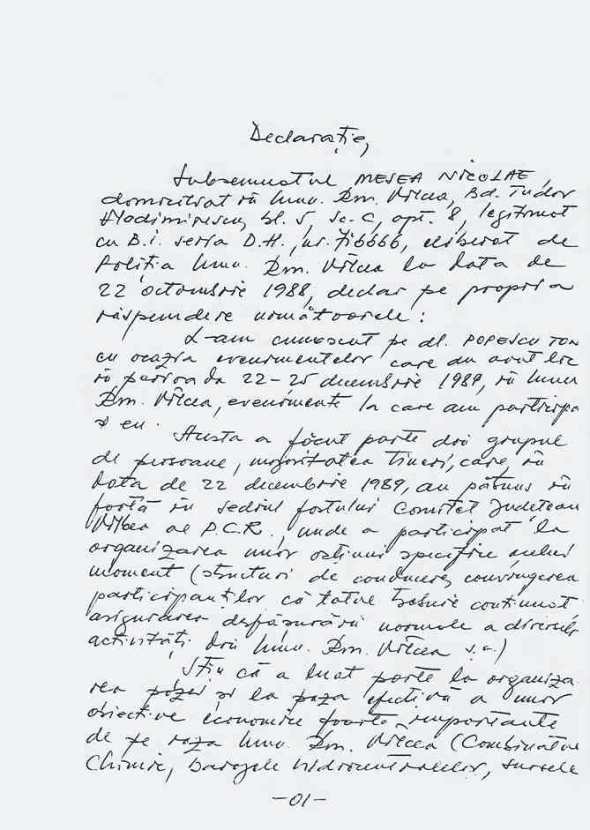 Declarație,
Subsemnatul MESEA NICOLAE,
domiciliat în mun. Rm. Vîlcea, Bd. Tudor
Vladimirescu, bl. 5, sc. C, apt. 8, legitimat
cu B.i. seria D.H., nr. 716666, eliberat de
Poliția mun. Rm. Vîlcea la data de
22 octombrie 1988, declar pe propria
răspundere următoarele:
L-am cunoscut pe dl. POPESCU ION
cu ocazia evenimentelor care au avut loc
în perioada 22-25 decembrie 1989, în mun
Rm. Vîlcea, evenimente la care am participa
și eu.
Acesta a făcut parte din grupul
de persoane, majoritatea tineri, care, în
data de 22 decembrie 1989, au pătruns în
forță în sediul fostului Comitet Județean
Vîlcea al P.C.R., unde a participat la
organizarea unor acțiuni specifice acelui
moment (structuri de conducere, convingerea
participanților că totul trebuie continuat
asigurarea desfășurării normale a
activității din mun. Rm. Vîlcea ș.a.)
Știu că a luat parte la organiza
rea pazei și la paza efectivă a unor
obiective economice foarte importante
de pe raza mun. Rm. Vîlcea (Combinatul
Chimic, barajele hidrocentralelor, sursele
-01-